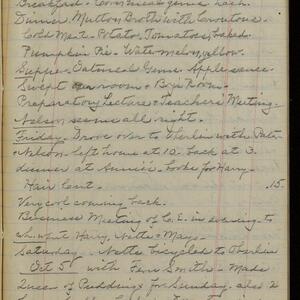 Breakfast - Cornmeal gems hash.
Dinner Mutton Broth with Croutons.
Cold Meat - Potato, Tomatoes, baked.
Pumpkin Pie - Watermelon, yellow.
Supper - Oatmeal Gems Apple sauce.
Swept room & By's Room.
Preparatory Lecture & Teachers' Meeting.
Nelson seems all right.
Friday. Drove over to Oberlin with
Nelson - left home at 10 - back at 3
dinner at Annie's. books for Harry.
Hair cut. .15.
Very cool coming back.
Business Meeting of C. E. in evening to
wh. went Harry, Netta & May.
Saturday. Netta bicycled to Oberlin
Oct 5 with Fern Smith - Made
2 res of Puddings for Sunday. also 2